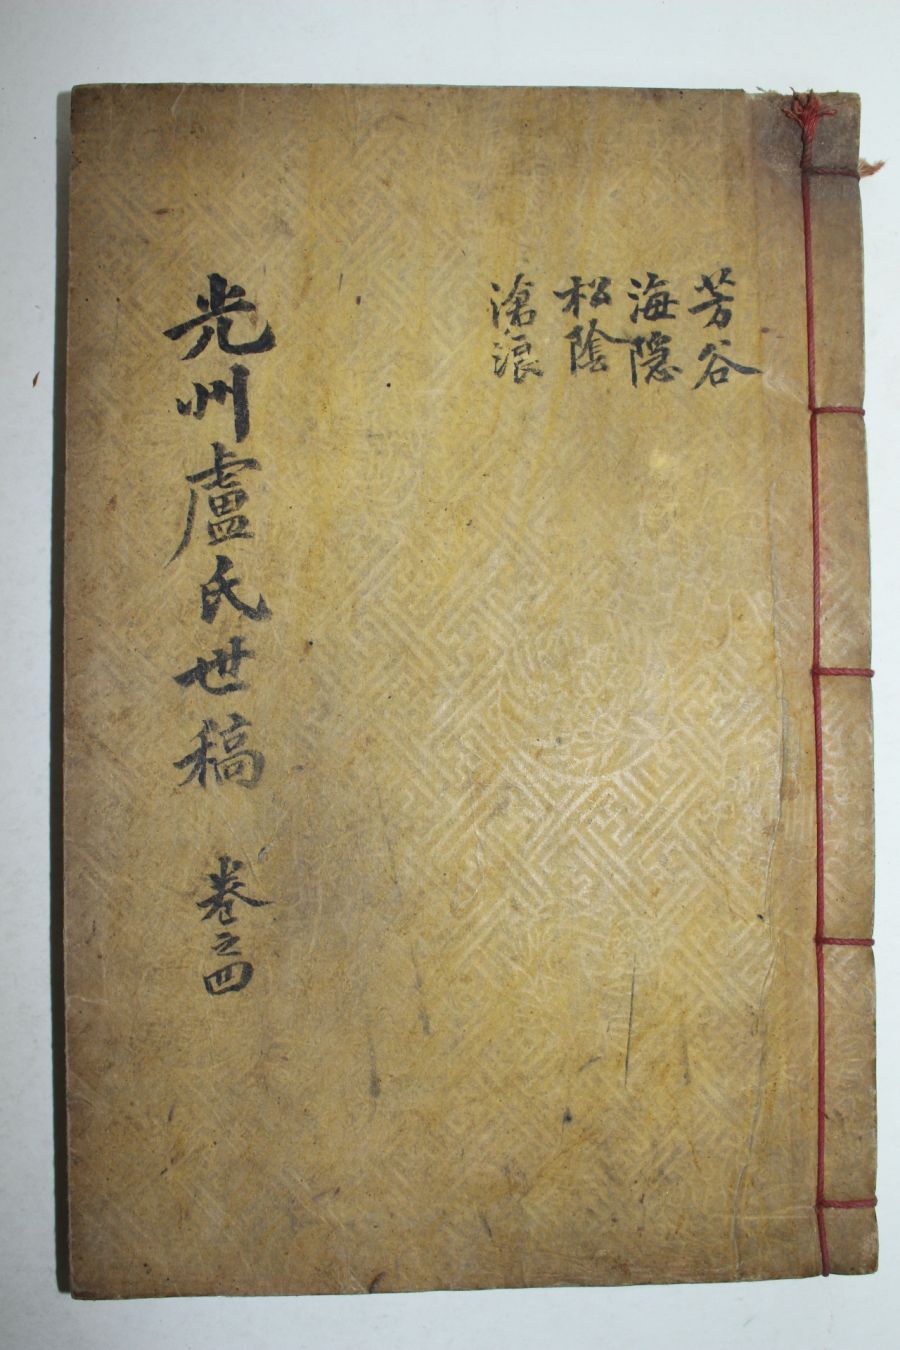 芳谷
海隱
松陰
滄浪
光州盧氏世稿 卷之四